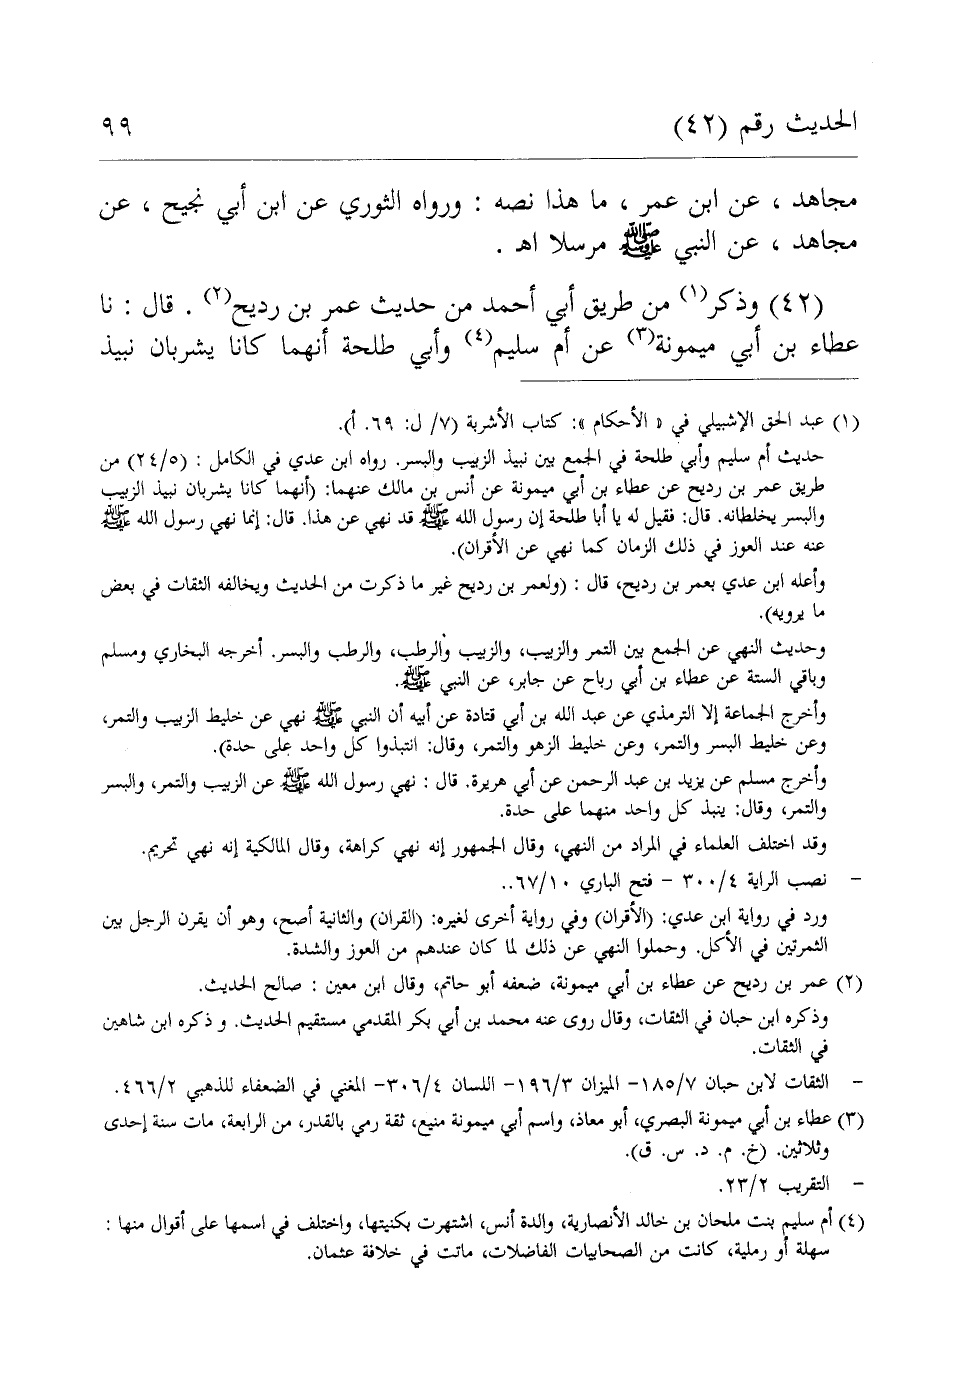 الحديث رقم (٤٢)
٩٩
مجاهد ، عن ابن عمر ، ما هذا نصه : ورواه الثوري عن ابن أبي نجيح ، عن
مجاهد ، عن النبي ﷺ مرسلا اهـ .
(٤٢) وذكر(١) من طريق أبي أحمد من حديث عمر بن رديح(٢) . قال : نا
عطاء بن أبي ميمونة(٣) عن أم سليم(٤) وأبي طلحة أنهما كانا يشربان نبيذ
(١) عبد الحق الإشبيلي في « الأحكام »: كتاب الأشربة (٧/ ل: ٦٩. أ).
حديث أم سليم وأبي طلحة في الجمع بين نبيذ الزبيب والبسر. رواه ابن عدي في الكامل : (٢٤/٥) من
طريق عمر بن رديح عن عطاء بن أبي ميمونة عن أنس بن مالك عنهما: (أنهما كانا يشربان نبيذ الزبيب
والبسر يخلطانه. قال: فقيل له يا أبا طلحة إن رسول الله ﷺ قد نهي عن هذا. قال: إنما نهي رسول الله ﷺ
عنه عند العوز في ذلك الزمان كما نهي عن الأقران).
وأعله ابن عدي بعمر بن رديح، قال : (ولعمر بن رديح غير ما ذكرت من الحديث ويخالفه الثقات في بعض
ما يرويه).
وحديث النهي عن الجمع بين التمر والزبيب، والزبيب والرطب، والرطب والبسر. أخرجه البخاري ومسلم
وباقي الستة عن عطاء بن أبي رباح عن جابر، عن النبي ﷺ.
وأخرج الجماعة إلا الترمذي عن عبد الله بن أبي قتادة عن أبيه أن النبي ﷺ نهي عن خليط الزبيب والتمر،
وعن خليط البسر والتمر، وعن خليط الزهو والتمر، وقال: انتبذوا كل واحد على حدة).
وأخرج مسلم عن يزيد بن عبد الرحمن عن أبي هريرة. قال : نهي رسول الله ﷺ عن الزبيب والتمر، والبسر
والتمر، وقال: ينبذ كل واحد منهما على حدة.
وقد اختلف العلماء في المراد من النهي، وقال الجمهور إنه نهي كراهة، وقال المالكية إنه نهي تحريم.
– نصب الراية ٣٠٠/٤ – فتح الباري ٦٧/١٠..
ورد في رواية ابن عدي: (الأقران) وفي رواية أخرى لغيره: (القران) والثانية أصح، وهو أن يقرن الرجل بين
الثمرتين في الأكل. وحملوا النهي عن ذلك لما كان عندهم من العوز والشدة.
(٢) عمر بن رديح عن عطاء بن أبي ميمونة، ضعفه أبو حاتم، وقال ابن معين : صالح الحديث.
وذكره ابن حبان في الثقات، وقال روى عنه محمد بن أبي بكر المقدمي مستقيم الحديث. و ذكره ابن شاهين
في الثقات.
– الثقات لابن حبان ١٨٥/٧– الميزان ١٩٦/٣– اللسان ٣٠٦/٤– المغني في الضعفاء للذهبي ٤٦٦/٢.
(٣) عطاء بن أبي ميمونة البصري، أبو معاذ، واسم أبي ميمونة منيع، ثقة رمي بالقدر، من الرابعة، مات سنة إحدى
وثلاثين. (خ. م. د. س. ق).
– التقريب ٢٣/٢.
(٤) أم سليم بنت ملحان بن خالد الأنصارية، والدة أنس، اشتهرت بكنيتها، واختلف في اسمها على أقوال منها :
سهلة أو رملية، كانت من الصحابيات الفاضلات، ماتت في خلافة عثمان.